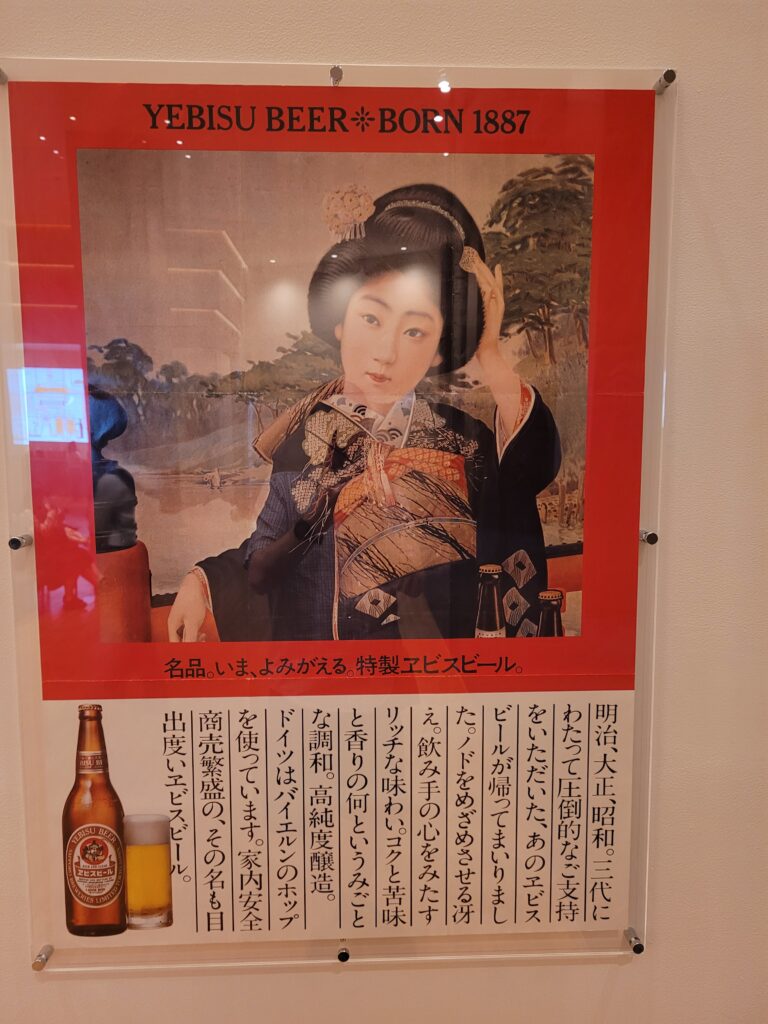 YEBISU BEER❊BORN 1887
名品。いま、よみがえる。特製ヱビスビール。
明治、大正、昭和。三代に
わたって圧倒的なご支持
をいただいた、あのヱビス
ビールが帰ってまいりまし
た。ノドをめざめさせる冴
え。飲み手の心をみたす
リッチな味わい。コクと苦味
と香りの何というみごと
な調和。高純度醸造。
ドイツはバイエルンのホップ
を使っています。家内安全
商売繁盛の、その名も目
出度いヱビスビール。
YEBISU BEER
ヱビスビール